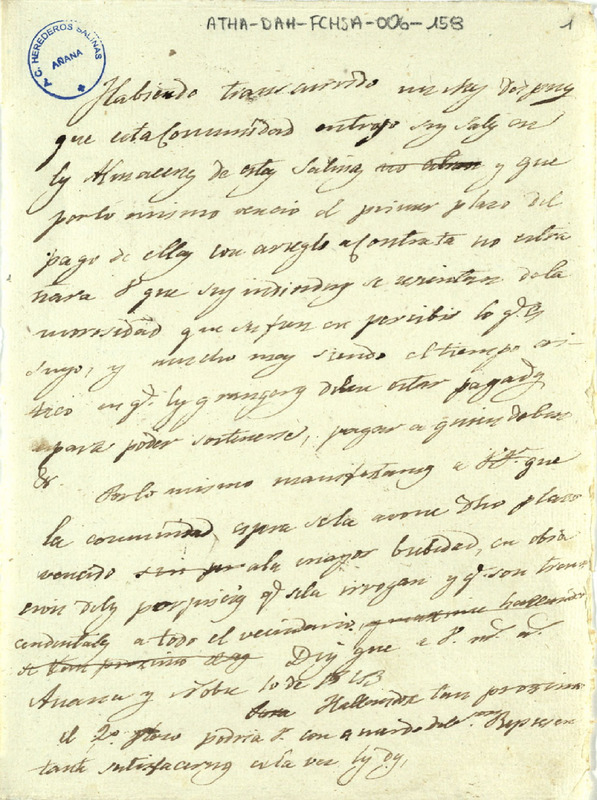 ATHA-DAH-FCHSA-006-158
1
A.C. HEREDEROS SALINAS
AÑANA
Habiendo transcurrido un mes despues
que esta Comunidad entrego sus sales en
los Almacenes de estas Salinas y que
por lo mismo vencio el primer plazo del
pago de ellas con arreglo a Contrata no estra
ñara V. que sus individuos se resientan de la
morosidad que sufren en percibir lo q.e es
suyo, y mucho mas siendo el tiempo cri-
tico en q.e los granjeros deben estar pagados
para poder sostenerse, pagar a quien deben
&.
Por lo mismo manifestamos a V. que
la comunidad espera se la avone dho plazo
vencido a la mayor brebedad, en obia
cion de los perjuicios q.e se la irrogan y q.e son trans
cendentales a todo el vecindario, y hallando
se tan proximo Dios gue a V. m.s a.s
Añana y 9bre 10 de
Hallandose tan proximo
el 2.º plazo podria V. con acuerdo del Represen
tante satisfacernos a la vez los dos,